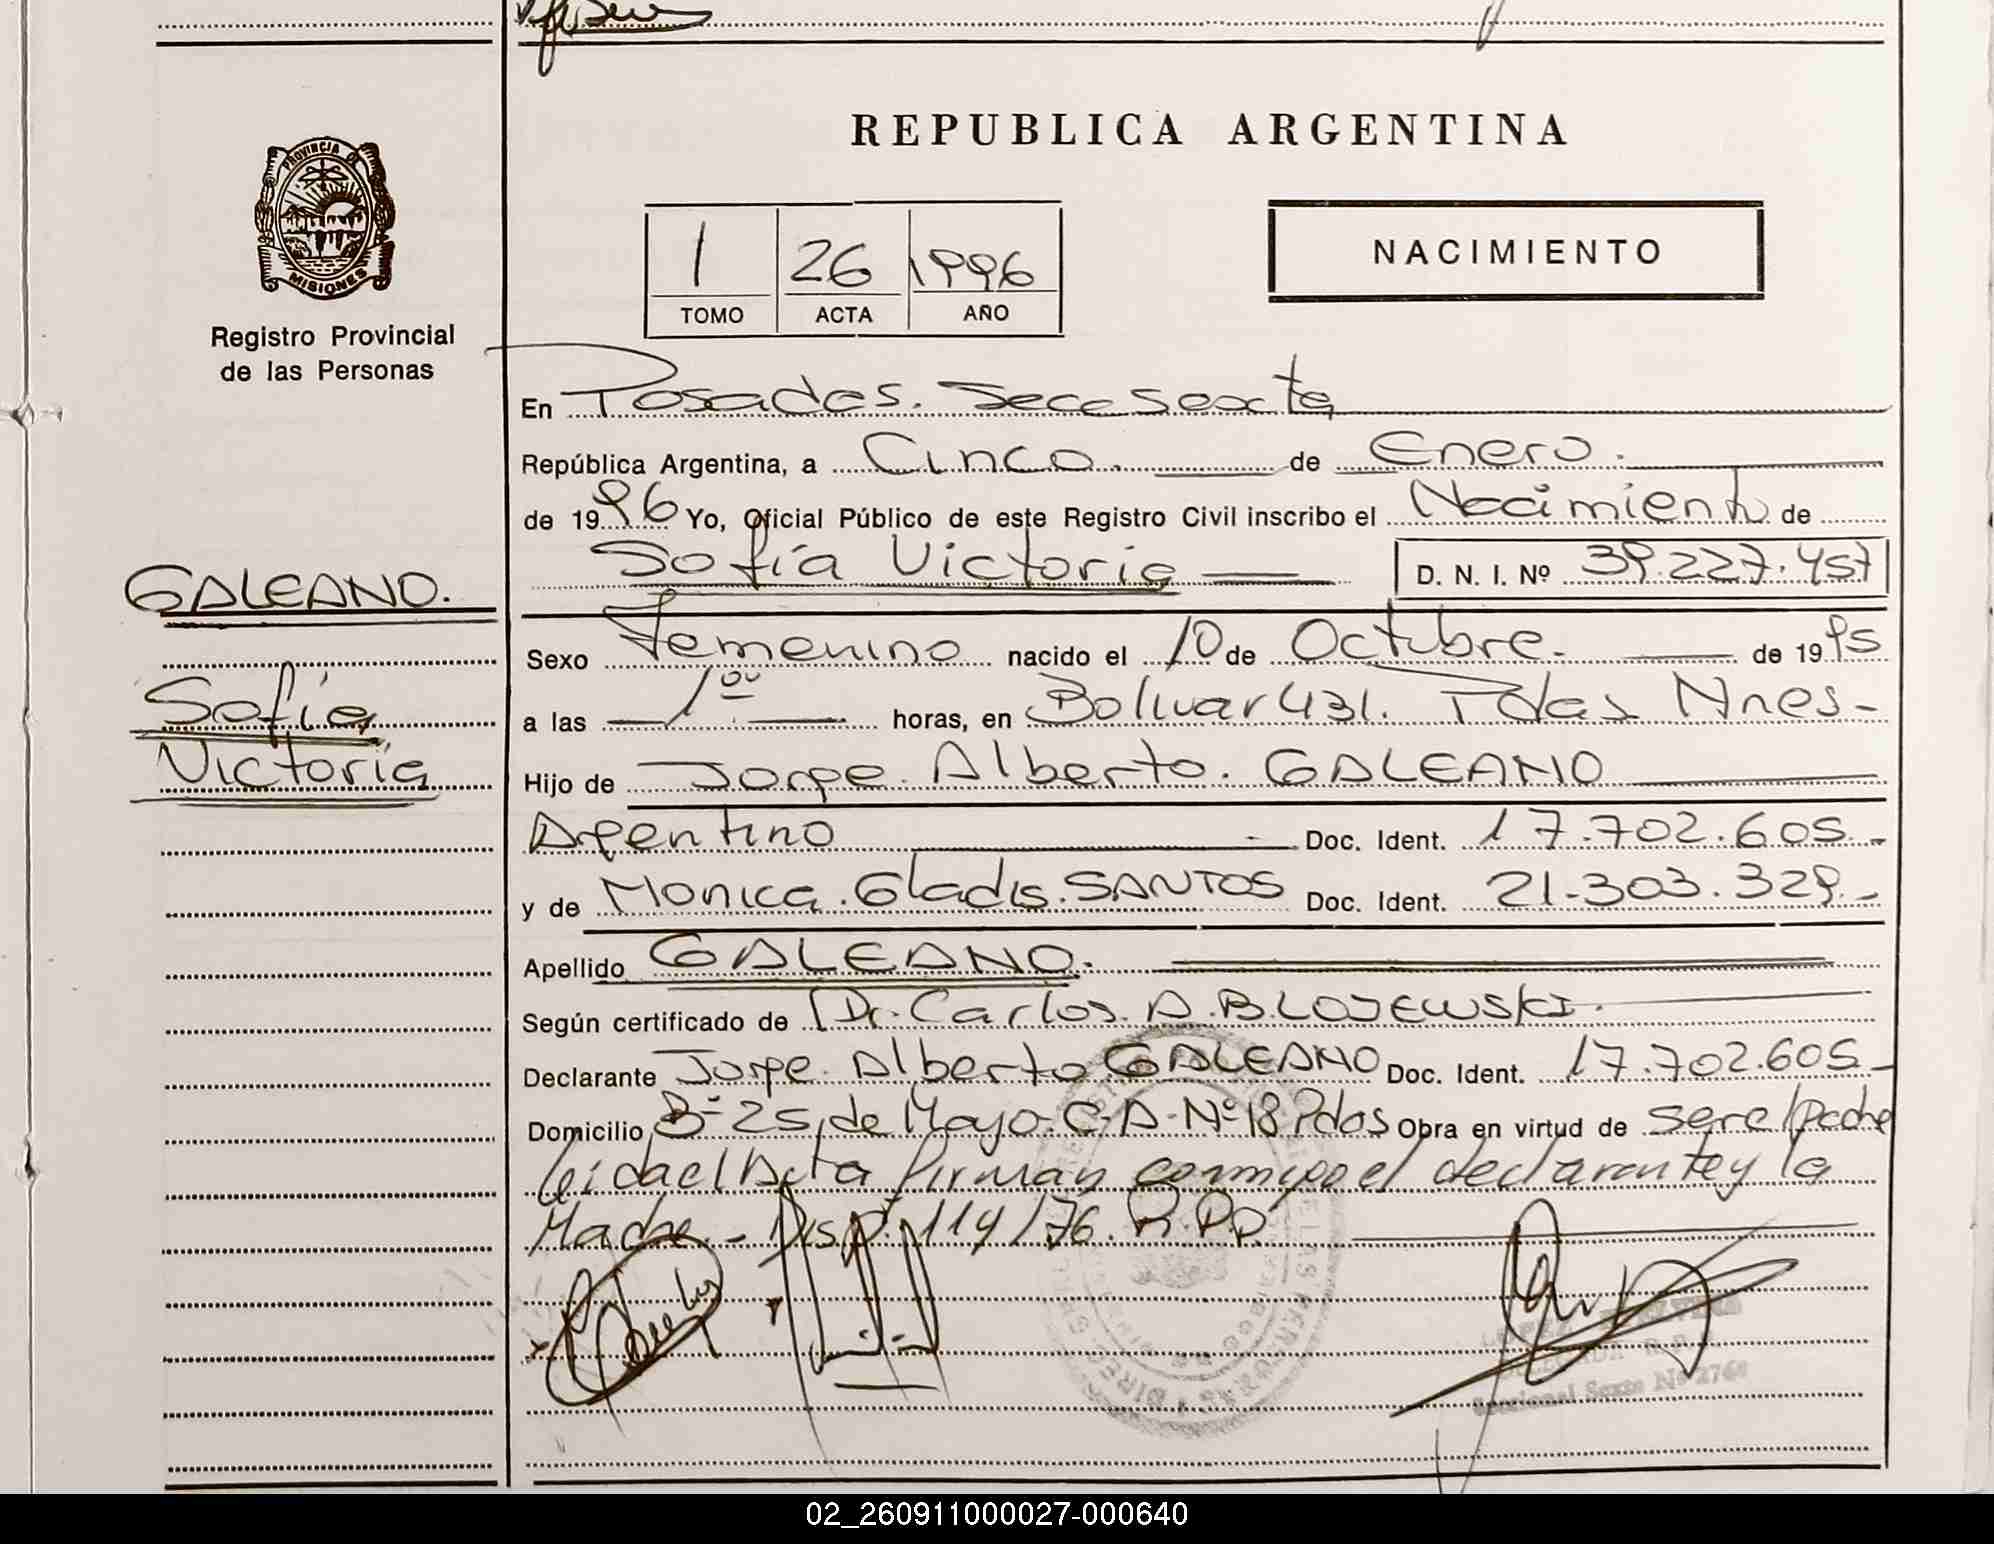 REPUBLICA ARGENTINA
PROVINCIA DE MISIONES
Registro Provincial
de las Personas
1 26 1996
TOMO ACTA AÑO
NACIMIENTO
En Posadas. Secc Sexta
República Argentina, a Cinco. de Enero.
de 1996 Yo, Oficial Público de este Registro Civil inscribo el Nacimiento de
Sofía Victoria D. N. I. Nº 39.227.457
GALEANO.
Sofía
Victoria
Sexo Femenino nacido el 10 de Octubre. de 1995
a las 1ºº horas, en Bolivar 431. Pdas Mnes-
Hijo de Jorge Alberto. GALEANO
Argentino Doc. Ident. 17.702.605.-
y de Monica. Gladis. SANTOS Doc. Ident. 21.303.329.-
Apellido GALEANO.
Según certificado de Dr. Carlos. A. BLOJEWSKI.
Declarante Jorge. Alberto GALEANO Doc. Ident. 17.702.605-
Domicilio Bº 25 de Mayo. C. A. Nº 18 Pdas Obra en virtud de ser el padre
leida el Acta firman conmigo el declarante y la
Madre.- Disp. 114/76. R.P.P.
Seccional Sexta Nº 2764
02_260911000027-000640